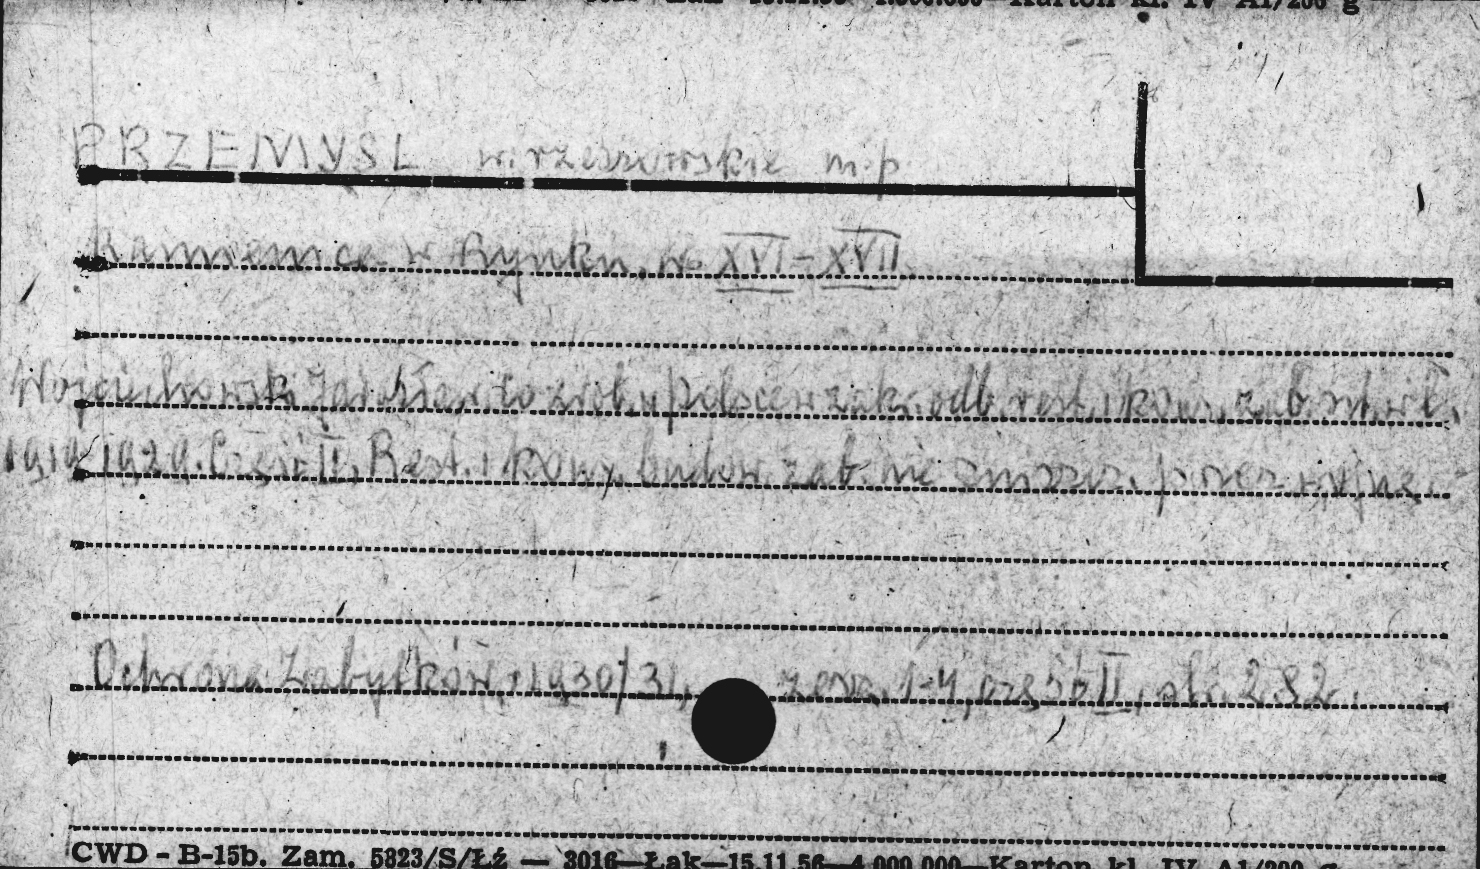 Karton kl. IV A1/200 g
PRZEMYSL w. rzeszowskie m.p
Kamienica w Rynku, w. XVI-XVII.
Wojciechowski Jarosław, co zrob. w Polsce w zak. odb. rest. i kons. zab. szt. w l.
1919/1929. Część II, Rest. i kons. budow. zab. nie zniszcz. przez wojnę.
Ochrona Zabytków, 1930/31, zesz. 1-4, część II, str. 282.
CWD - B-15b. Zam. 5823/S/Łź — 3016—Łak—15.11.56—4.000.000—Karton kl. IV A1/200 g